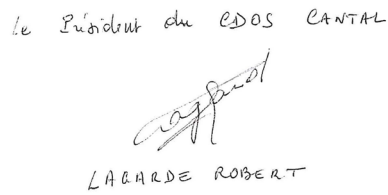 Le Président du CDOS CANTAL
Lagarde
LAGARDE ROBERT